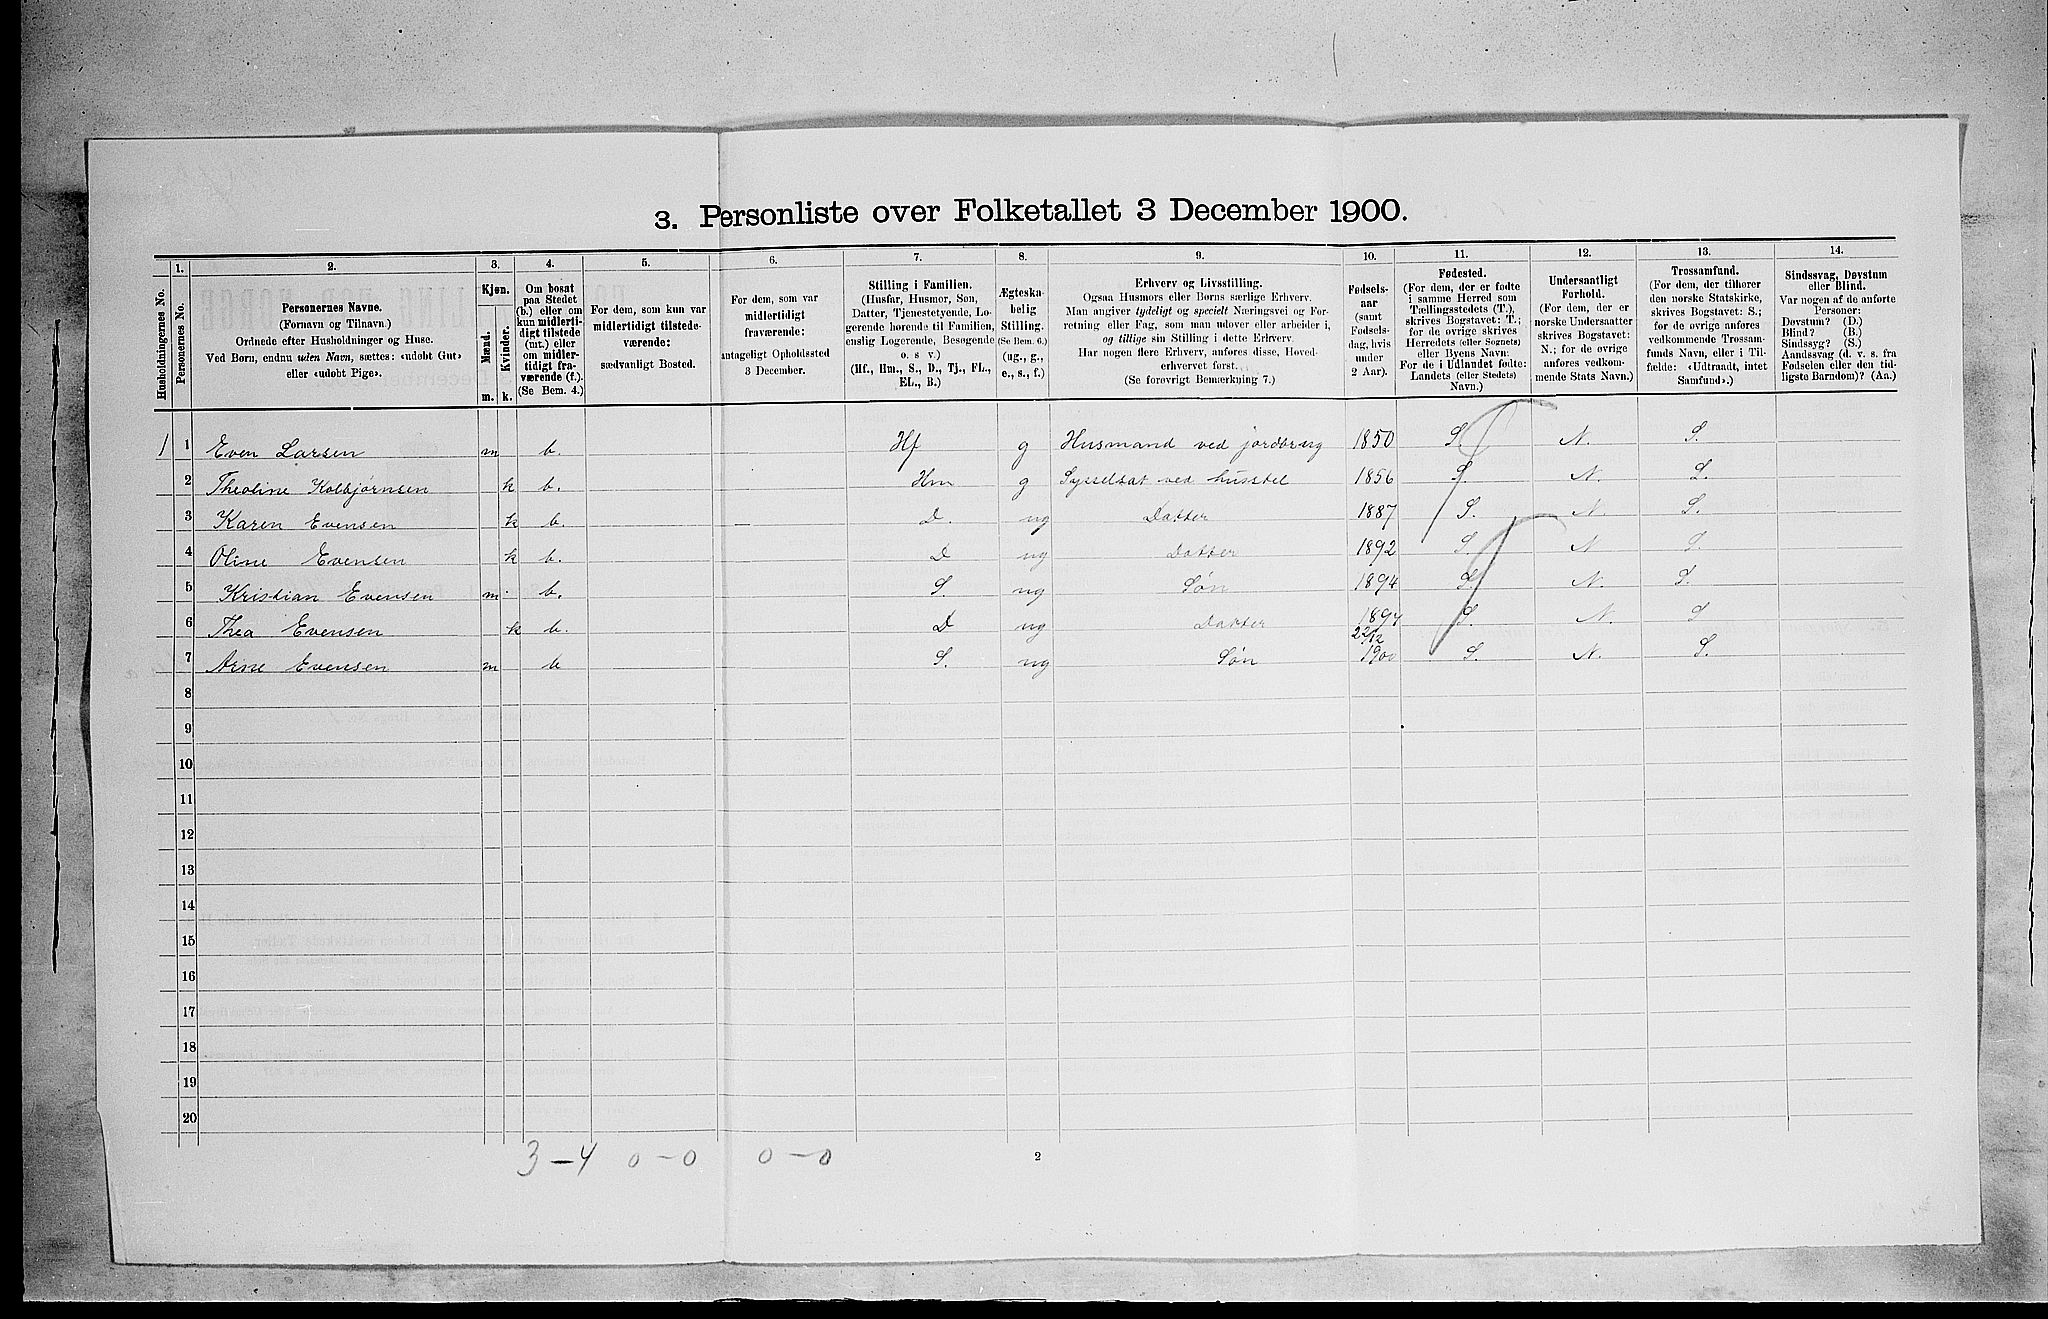 3. Personliste over Folketallet 3 December 1900.
Husholdningernes No.
1.
Personernes No.
2.
Personernes Navne.
(Fornavn og Tilnavn.)
Ordnede efter Husholdninger og Huse.
Ved Børn, endnu uden Navn, sættes: «udøbt Gut»
eller «udøbt Pige».
3.
Kjøn.
Mænd.
m.
Kvinder.
k.
4.
Om bosat
paa Stedet
(b.) eller om
kun midlerti-
digt tilstede
(mt.) eller
om midler-
tidigt fra-
værende (f.)
(Se Bem. 4.)
5.
For dem, som kun var
midlertidigt tilstede-
værende:
sædvanligt Bosted.
6.
For dem, som var
midlertidigt
fraværende:
antageligt Opholdssted
3 December.
7.
Stilling i Familien.
(Husfar, Husmor, Søn,
Datter, Tjenestetyende, Lo-
gerende hørende til Familien,
enslig Logerende, Besøgende
o. s v.)
(Hf., Hm., S., D., Tj., FL.,
EL., B.)
8.
Ægteska-
belig
Stilling.
(Se Bem. 6.)
(ug., g.,
e., s., f.)
9.
Erhverv og Livsstilling.
Ogsaa Husmors eller Børns særlige Erhverv.
Man angiver tydeligt og specielt Næringsvei og For-
retning eller Fag, som man udøver eller arbeider i,
og tillige sin Stilling i dette Erhverv.
Har nogen flere Erhverv, anføres disse, Hoved-
erhvervet først.
(Se forøvrigt Bemærkning 7.)
10.
Fødsels-
aar
(samt
Fødsels-
dag, hvis
under
2 Aar).
11.
Fødested.
(For dem, der er fødte
i samme Herred som
Tællingsstedets (T.),
skrives Bogstavet: T.;
for de øvrige skrives
Herredets (eller Sognets)
eller Byens Navn.
For de i Udlandet fødte:
Landets (eller Stedets)
Navn.)
12.
Undersaatligt
Forhold.
(For dem, der er
norske Undersaatter
skrives Bogstavet:
N.; for de øvrige
anføres vedkom-
mende Stats Navn.)
13.
Trossamfund.
(For dem, der tilhører
den norske Statskirke,
skrives Bogstavet: S.;
for de øvrige anføres
vedkommende Trossam-
funds Navn, eller i Til-
fælde: «Udtraadt, intet
Samfund».)
14.
Sindssvag, Døvstum
eller Blind.
Var nogen af de anførte
Personer:
Døvstum? (D.)
Blind? (B.)
Sindssyg? (S.)
Aandssvag (d. v. s. fra
Fødselen eller den tid-
ligste Barndom)? (Aa.)
1 1 Even Larsen m b. Hf g Husmand ved jordbrug 1850 S. N. S.
2 Theoline Kolbjørnsen k b. Hm g Sysselsat ved husstel 1856 S. N. S.
3 Karen Evensen k b. – D. ug Datter 1887 S. N S.
4 Oline Evensen k b. D ug Datter 1892 S. N S.
5 Kristian Evensen m. b. S. ug Søn 1894 S. N. S.
6 Thea Evensen k b. D ug Datter 1897 S. N. S
7 Arne Evensen m b S. ug Søn 1900 S. N. S.
8
9
10
11
12
13
14
15
16
17
18
19
20
3 – 4 0 – 0 0 – 0
2